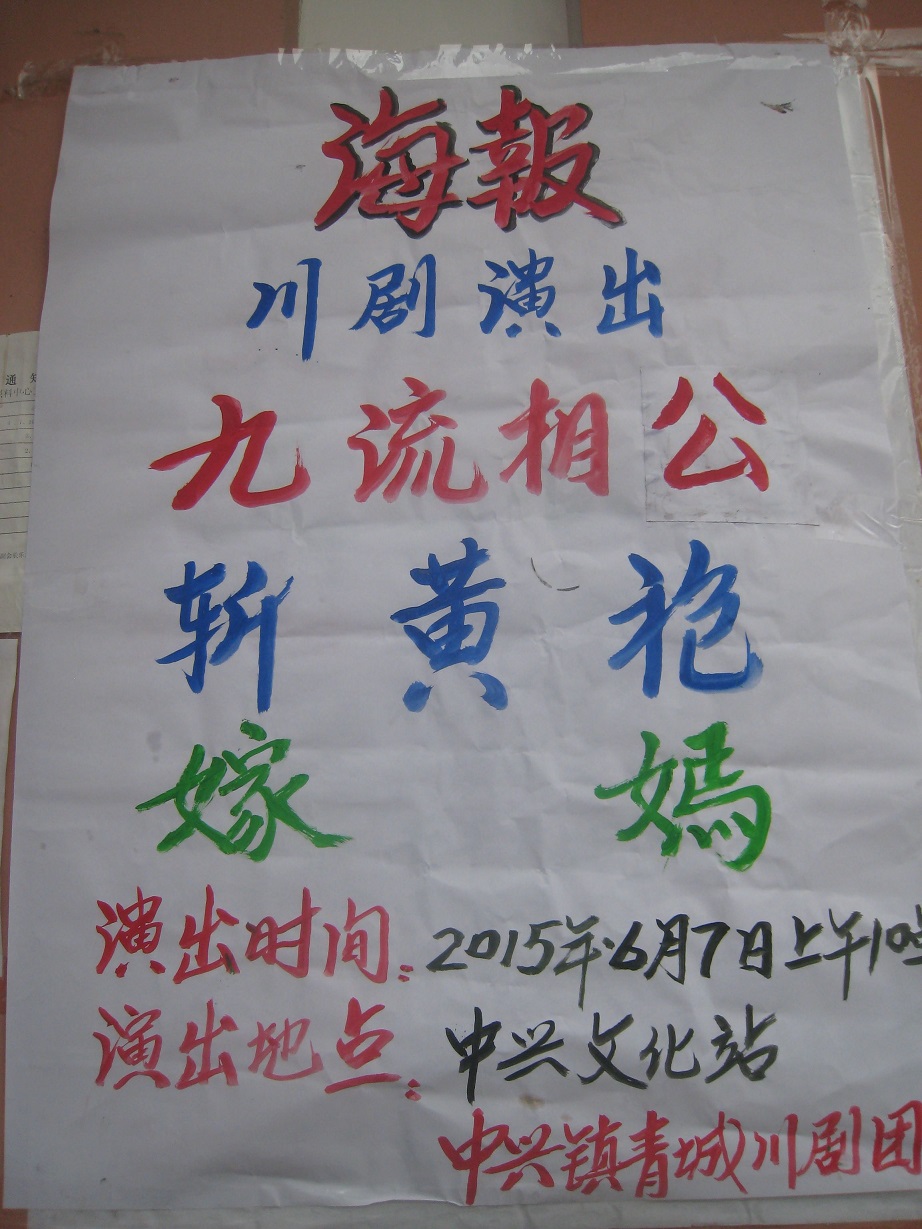 海報
川剧演出
九流相公
斩黄袍
嫁嫣
演出时间:2015年6月7日上午10
演出地点:中兴文化站
中兴镇青城川剧团
通知